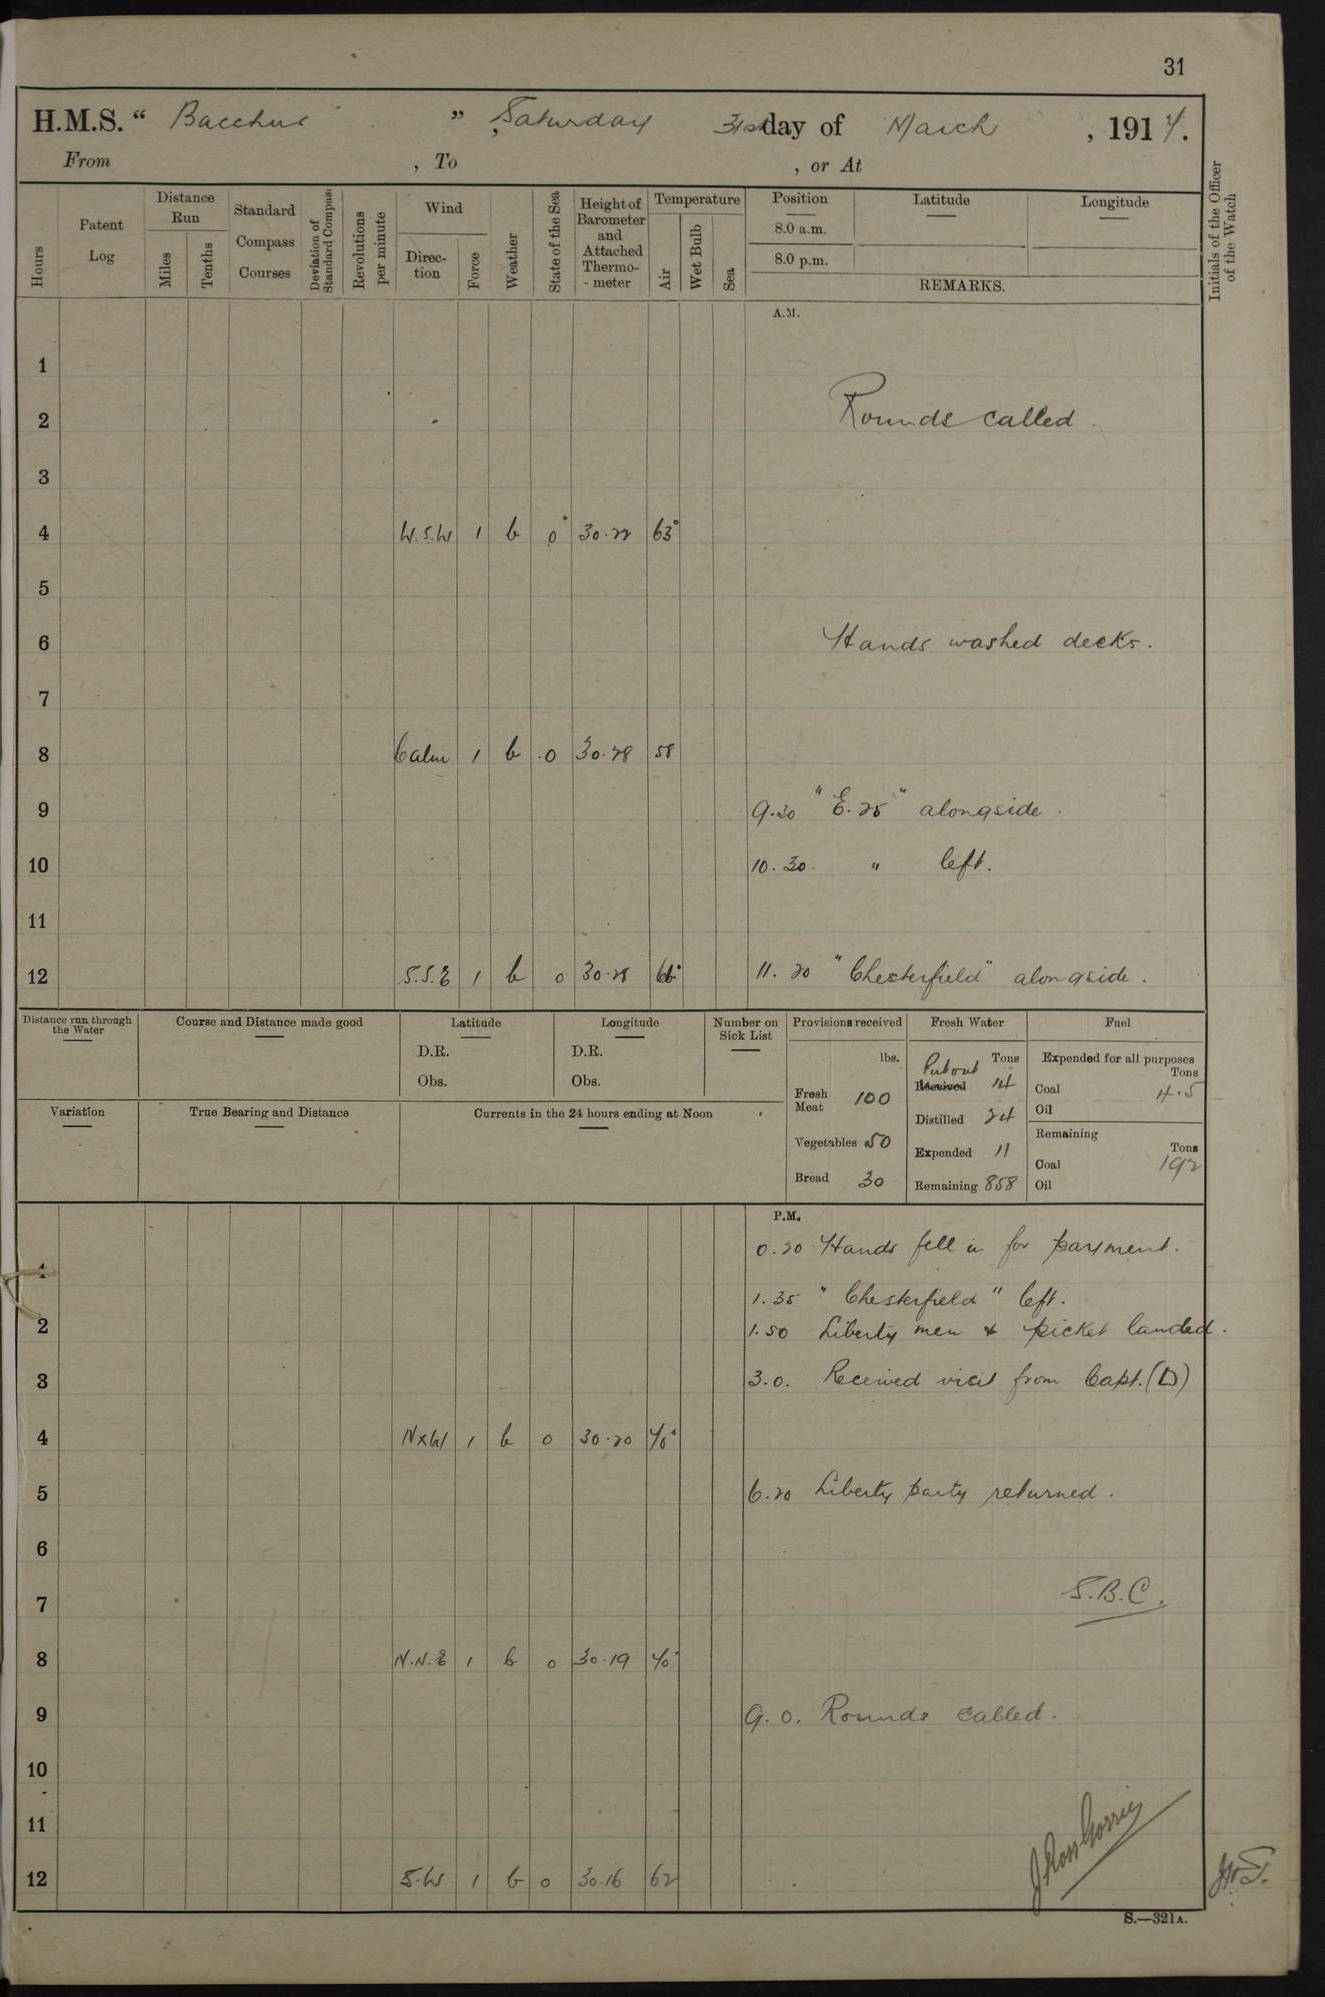 31
H.M.S. “ Bacchus ” , Saturday 31st day of March , 1917.
From , To , or At
Hours
Patent Log
Distance Run
Miles
Tenths
Standard Compass Courses
Deviation of Standard Compass
Revolutions per minute
Wind
Direc- tion
Force
Weather
State of the Sea
Height of Barometer and Attached Thermo- - meter
Temperature
Air
Wet Bulb
Sea
Position
8.0 a.m.
8.0 p.m.
Latitude
Longitude
REMARKS.
Initials of the Officer of the Watch
A.M.
1
2 Rounds called.
3
4 W.S.W 1 b 0 30.22 63°
5
6 Hands washed decks.
7
8 Calm 1 b 0 30.28 58
9 9.30 "E.25" alongside.
10 10.30 " left.
11
12 S.S.E 1 b 0 30.28 66° 11.20 "Chesterfield" alongside.
Distance run through the Water
Course and Distance made good
Latitude
D.R.
Obs.
Longitude
D.R.
Obs.
Number on Sick List
Variation
True Bearing and Distance
Currents in the 24 hours ending at Noon
Provisions received
lbs.
Fresh Meat 100
Vegetables 50
Bread 30
Fresh Water
Tons
Put out Received 14
Distilled 24
Expended 11
Remaining 858
Fuel
Expended for all purposes
Tons
Coal 4.5
Oil
Remaining
Tons
Coal 192
Oil
P.M.
0.20 Hands fell in for payment.
1
1.35 "Chesterfield" left.
2 1.50 Liberty men & picket landed.
3 3.0. Received visit from Capt. (D)
4 NxW 1 b 0 30.20 70°
5 6.20 Liberty party returned.
6
7 S.B.C.
8 N.N.E 1 b 0 30.19 70°
9 9.0. Rounds called.
10
11
12 S.W 1 b 0 30.16 62
S.—321A.